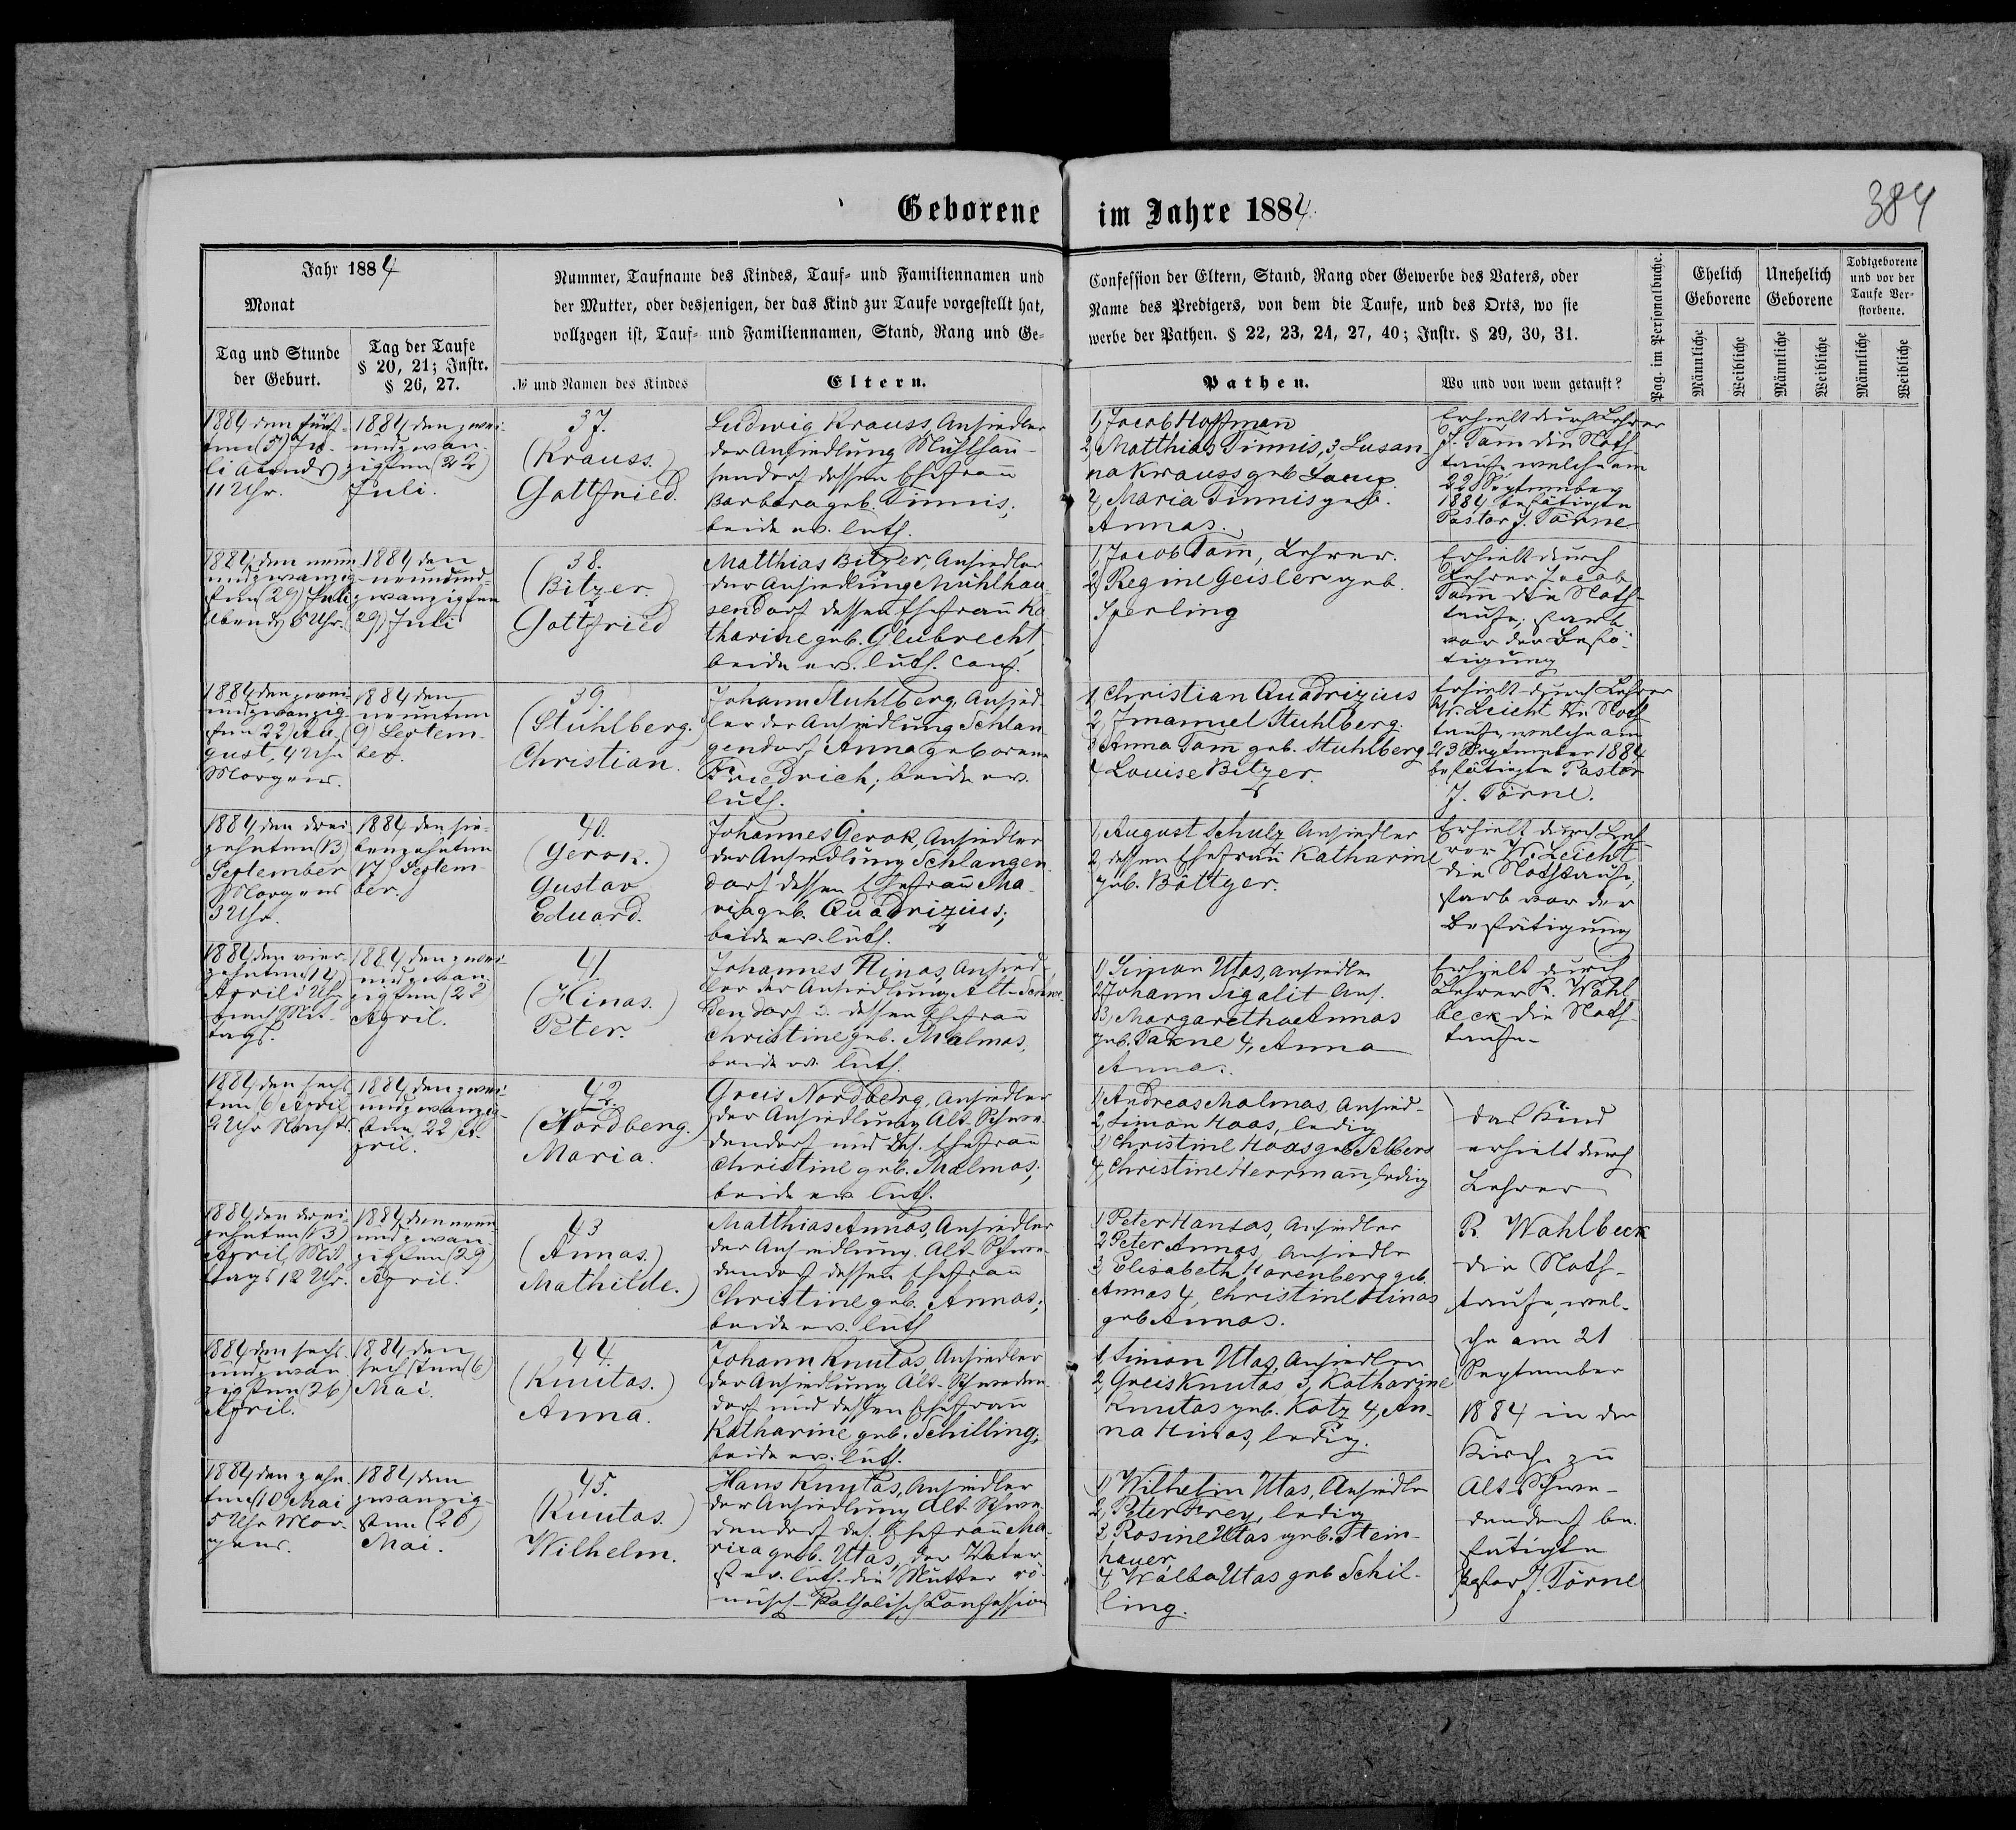 Geborene im Jahre 1884.
384
Jahr 1884
Monat
Tag und Stunde
der Geburt.
Tag der Taufe
§ 20, 21; Instr.
§ 26, 27.
Nummer, Taufname des Kindes, Tauf- und Familiennamen und
der Mutter, oder desjenigen, der das Kind zur Taufe vorgestellt hat,
vollzogen ist, Tauf- und Familiennamen, Stand, Rang und Ge-
№ und Namen des Kindes
Eltern.
Confession der Eltern, Stand, Rang oder Gewerbe des Vaters, oder
Name des Predigers, von dem die Taufe, und des Orts, wo sie
werbe der Pathen. § 22, 23, 24, 27, 40; Instr. § 29, 30, 31.
Pathen.
Wo und von wem getauft?
Pag. im Personalbuche.
Ehelich
Geborene
Unehelich
Geborene
Todtgeborene
und vor der
Taufe Ver-
storbene.
Männliche
Weibliche
Männliche
Weibliche
Männliche
Weibliche
1884 den fünf-
ten (5) Ju-
li Abends
11 Uhr.
1884 den zwei
undzwan-
zigsten (22)
Juli.
37.
(Krauss.)
Gottfried.
Ludwig Krauss, Ansiedler
der Ansiedlung Mühlhau-
sendorf dessen Ehefrau
Barbara geb. Tinnis;
beide ev. luth.
1, Jacob Hoffman
2, Matthias Tinnis, 3, Susan
na Krauss geb
4, Maria Tinnis geb.
Annas.
Erhielt durch Lehrer
J. Tam die Noth
taufe welche am
22 September
1884 bestätigte
Pastor J. Törne
1884 den neun
undzwanzig-
sten (29) Juli
Abends 6 Uhr.
1884 den
neunund-
zwanzigsten
29) Juli
38.
(Bitzer.)
Gottfried
Matthias Bitzer, Ansiedler
der Ansiedlung Mühlhau
sendorf dessen Ehefrau Ka
tharine geb. Glubrecht,
beide ev. luth. Conf.
1, Jacob Tam, Lehrer.
2, Regine Geisler geb.
Sperling
Erhielt durch
Lehrer Jacob
Tam die Noth-
taufe; starb
vor der Bestä-
tigung
1884 den zwei
undzwanzig-
sten 22) Au-
gust, 4 Uhr
Morgens.
1884 den
neunten
9) Septem-
ber.
39.
(Stuhlberg.)
Christian.
Johann Stuhlberg, Ansied
ler der Ansiedlung Schlan
gendorf Anna geborene
Friedrich; beide ev.
luth.
1, Christian Quadrizius
2, Imanuel Stuhlberg.
3, Anna Tam geb. Stuhlberg
4, Louise Bitzer.
Erhielt durch Lehrer
W. Leicht die Noth
taufe, welche am
23 September 1884
bestätigte Pastor
J. Törne.
1884 den drei
zehnten (13)
September
Morgens
3 Uhr.
1884 den sie-
benzehnten
17) Septem-
ber.
40.
(Gerok.)
Gustav
Eduard.
Johannes Gerok, Ansiedler
der Ansiedlung Schlangen
dorf dessen Ehefrau Ma-
ria geb. Quadrizius;
beide ev. luth.
1, August Schulz Ansiedler
2, dessen Ehefrau Katharine
geb. Böttger.
Erhielt durch Leh-
rer W. Leicht
die Nothtaufe,
starb vor der
Bestätigung
1884 den vier-
zehnten (14)
April 1 Uhr
nach Mit-
tags.
1884 den zwei
undzwan-
zigsten (22
April.
41.
(Hinas.)
Peter.
Johannes Hinas, Ansied-
ler der Ansiedlung Alt-Schwe
dendorf u. dessen Ehefrau
Christine geb. Malmas,
beide ev. luth.
1) Simon Utas, Ansiedler
2) Johann Sigalit Ans.
3, Margaretha Annas
geb. Takne 4, Anna
Annas.
Erhielt durch
Lehrer R. Wahl
beck die Noth-
taufe
1884 den sechs
ten 6) April
2 Uhr Nachts.
1884 den zwei
undzwanzig-
sten 22 A-
pril.
42.
(Nordberg.)
Maria.
Greis Nordberg, Ansiedler
der Ansiedlung Alt-Schwe-
dendorf und des. Ehefrau
Christine geb. Malmas;
beide ev. luth.
1) Andreas Malmas, Ansied-
2, Simon Haas, ledig
3, Christine Haas geb Albers
4, Christine Herrman, ledig
Das Kind
erhielt durch
Lehrer
R. Wahlbeck
die Noth-
taufe, wel-
che am 21
September
1884 in der
Kirche zu
Alt-Schwe-
dendorf be-
stätigte
Pastor J. Törne
1884 den drei-
zehnten (13)
April, Mit
tags 12 Uhr.
1884 den neun
undzwan-
zigsten (29)
April.
43
(Annas.)
Mathilde.
Matthias Annas, Ansiedler
der Ansiedlung Alt-Schwe-
dendorf dessen Ehefrau
Christine geb. Annas;
beide ev. luth
1, Peter Hansas, Ansiedler
2 Peter Annas, Ansiedler
3, Elisabeth Harenberg geb.
Annas 4, Christine Hinas
geb Annas.
1884 den sechs
undzwan
zigsten (26)
April.
1884 den
sechsten (6)
Mai.
44.
(Knutas.)
Anna.
Johann Knutas, Ansiedler
der Ansiedlung Alt-Schweden-
dorf und dessen Ehefrau
Katharine geb. Schilling;
beide ev. luth.
1, Simon Utas, Ansiedler
2, Greis Knutas 3, Katharine
Knutas geb. Kotz 4, An-
na Hinas, ledig.
1884 den zehn
ten (10 Mai
5 Uhr Mor-
gens.
1884 den
zwanzig-
sten (20)
Mai.
45.
(Knutas.)
Wilhelm.
Hans Knutas, Ansiedler
der Ansiedlung Alt-Schwe-
dendorf des. Ehefrau Ma-
ria geb. Utas, der Vater
ist ev. luth. die Mutter rö-
misch-Katholisch Confession
1) Wilhelm Utas, Ansiedler
2, Peter Frey, ledig
3, Rosine Utas geb. Stein-
hauer,
4, Walba Utas geb Schil-
ling.